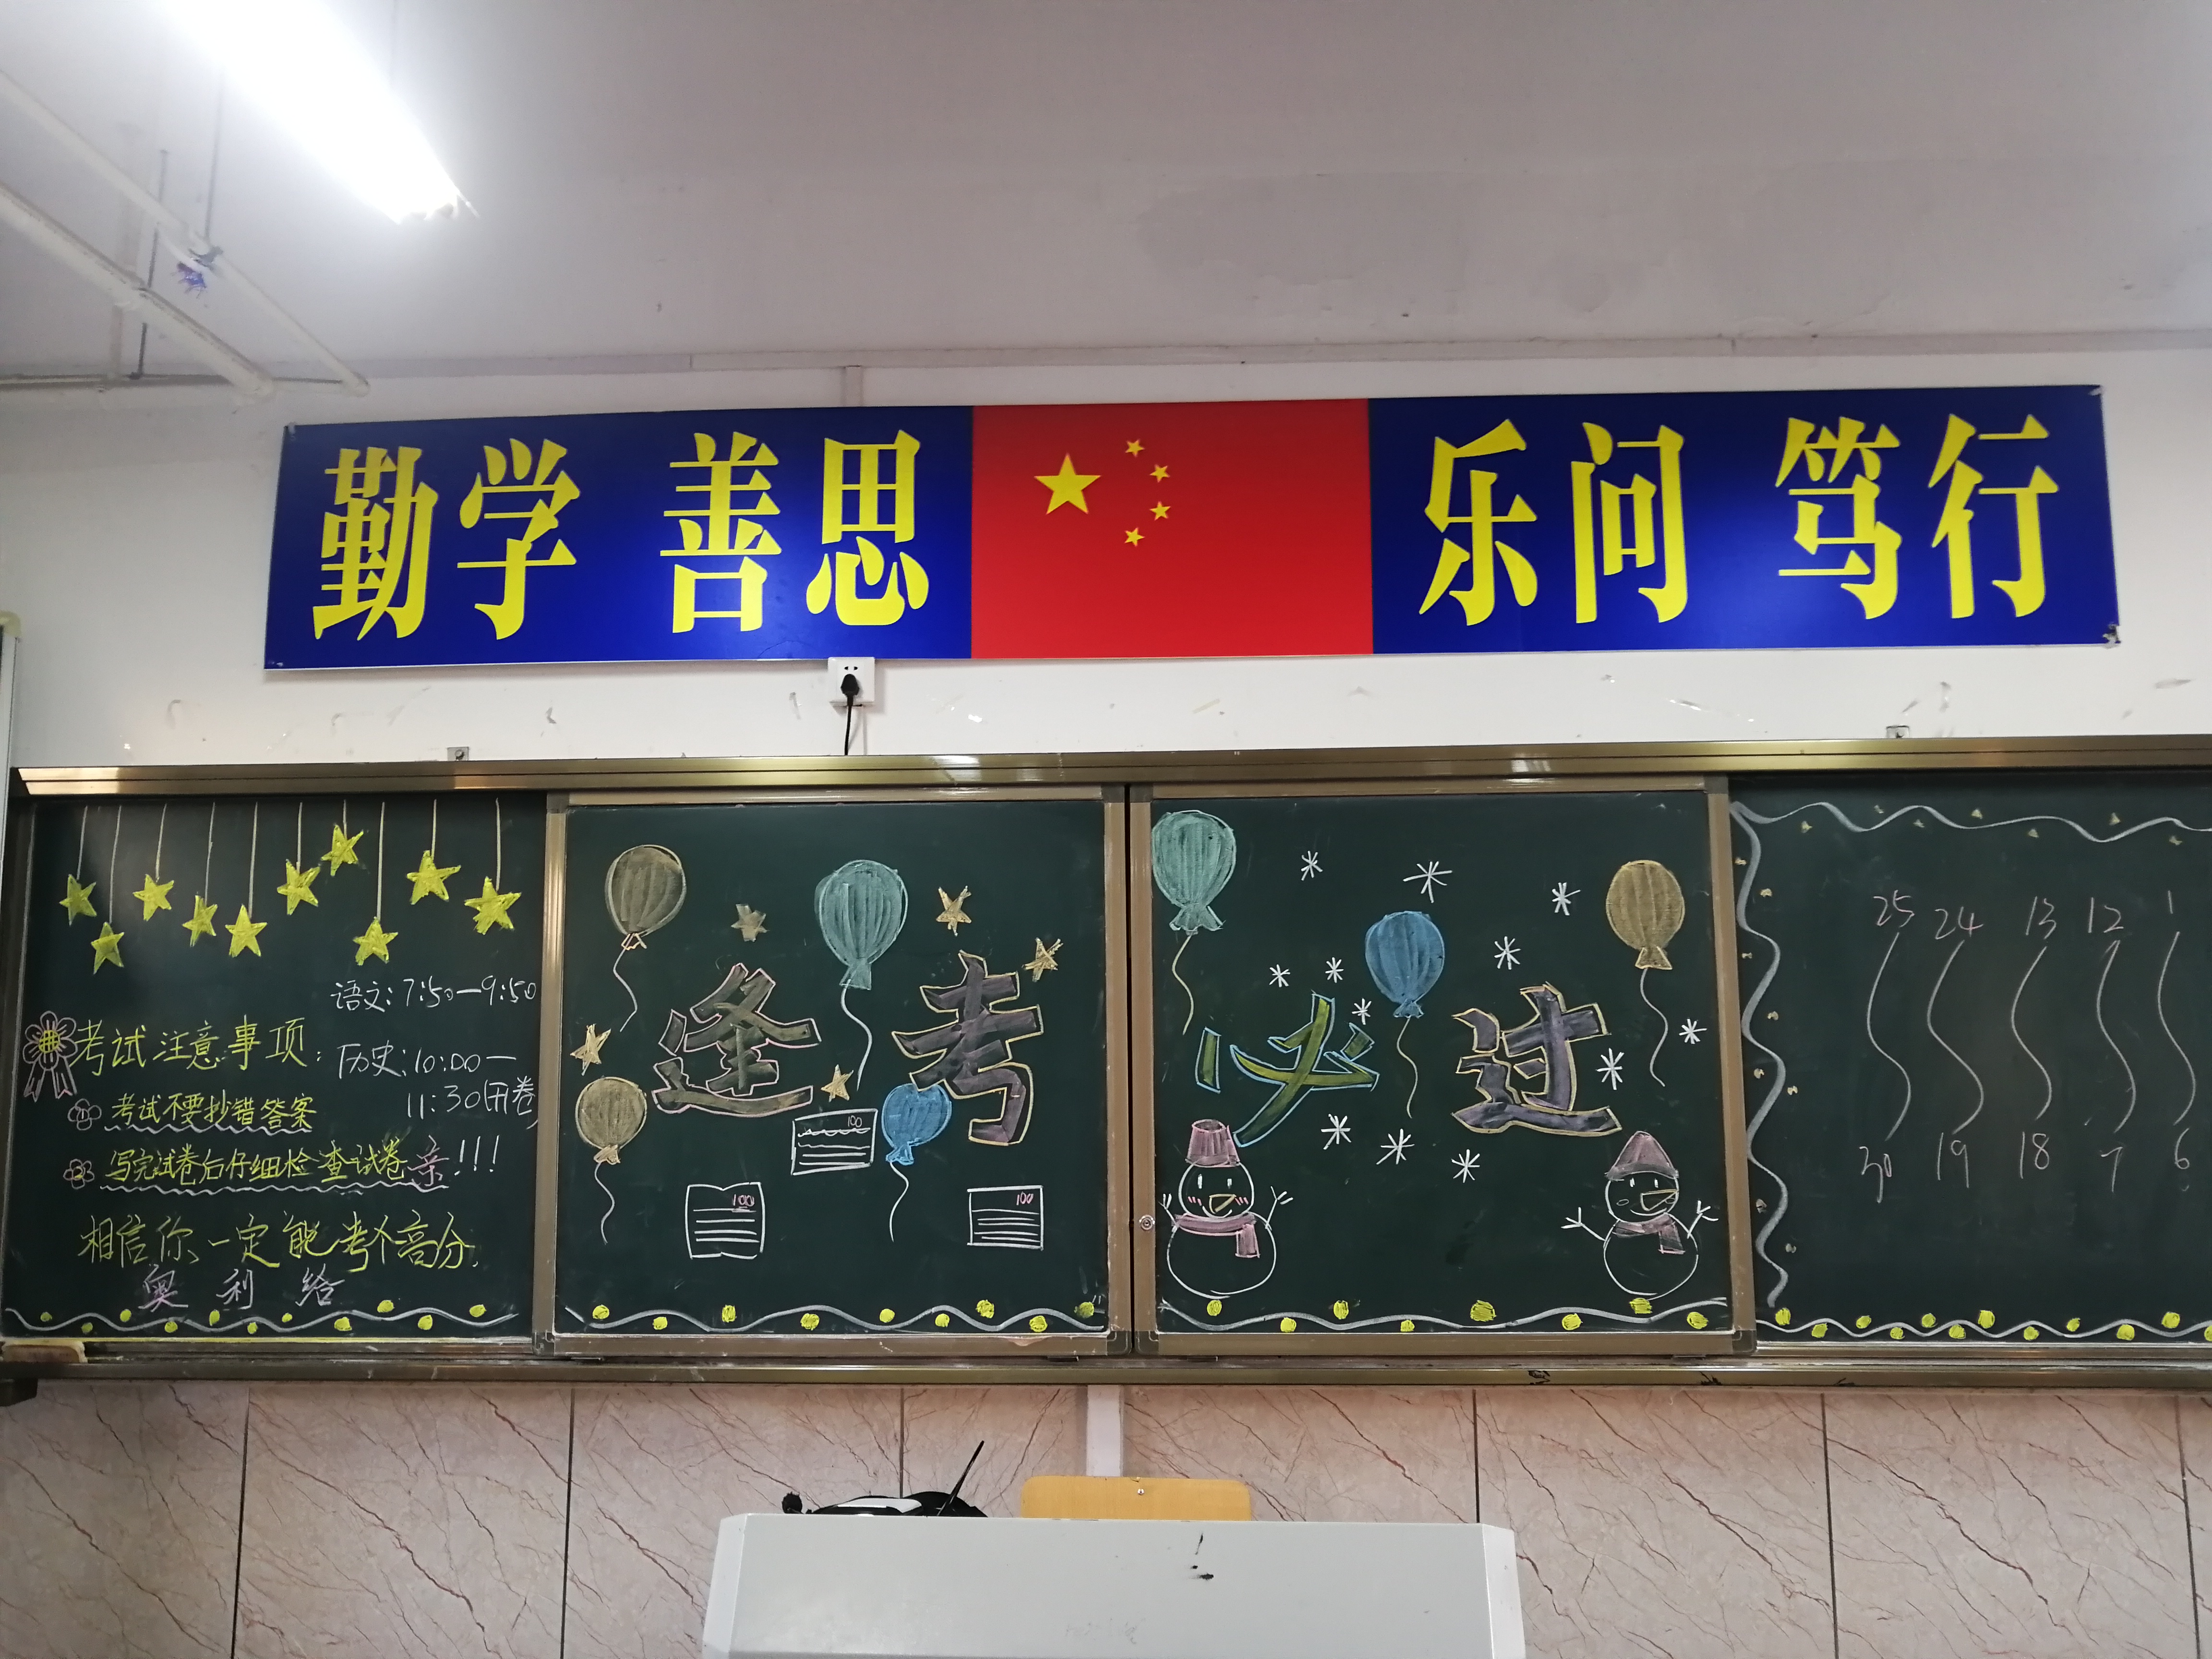 勤学 善思 乐问 笃行
语文:7:50—9:50
考试注意事项:
历史:10:00—
11:30(闭卷)
考试不要抄错答案
写完试卷后仔细检查试卷 亲!!!
相信你一定能考个高分.
奥利给
逢考
必过
100
100
100
25 24 13 12 1
30 19 18 7 6